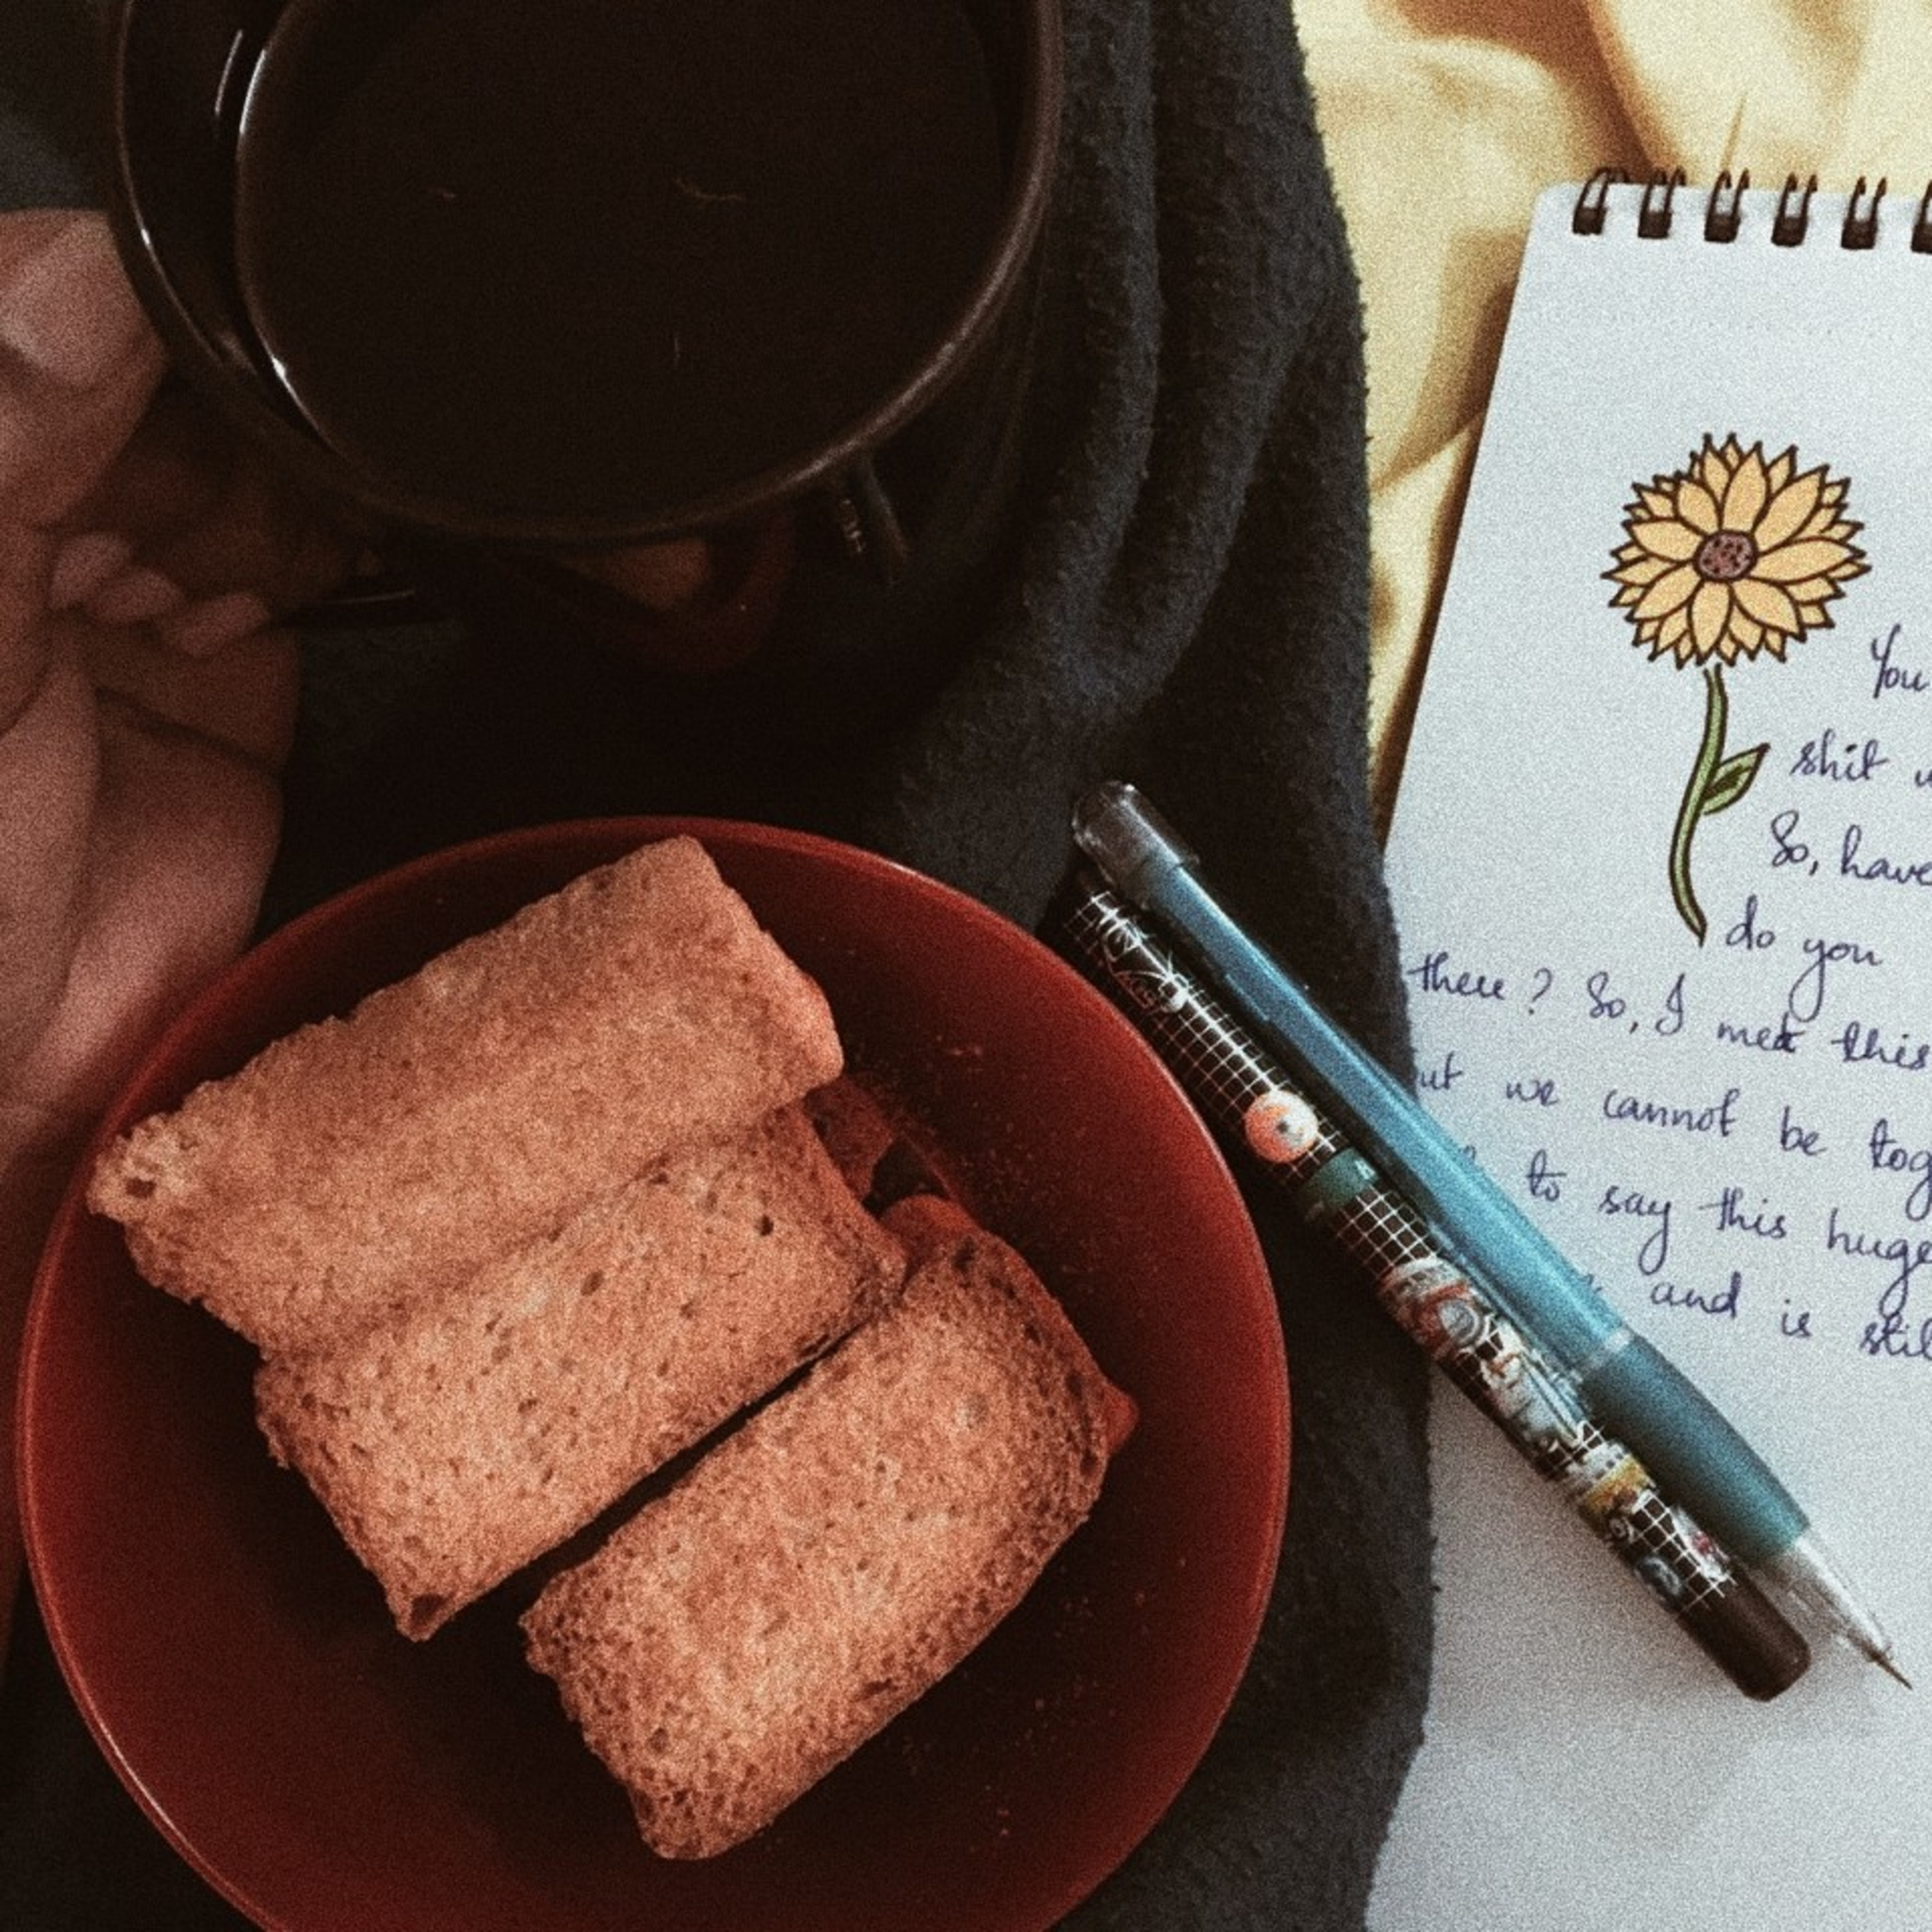 You
shit
So, have
do you
there? So, I met this
ut we cannot be tog
to say this huge
and is stil